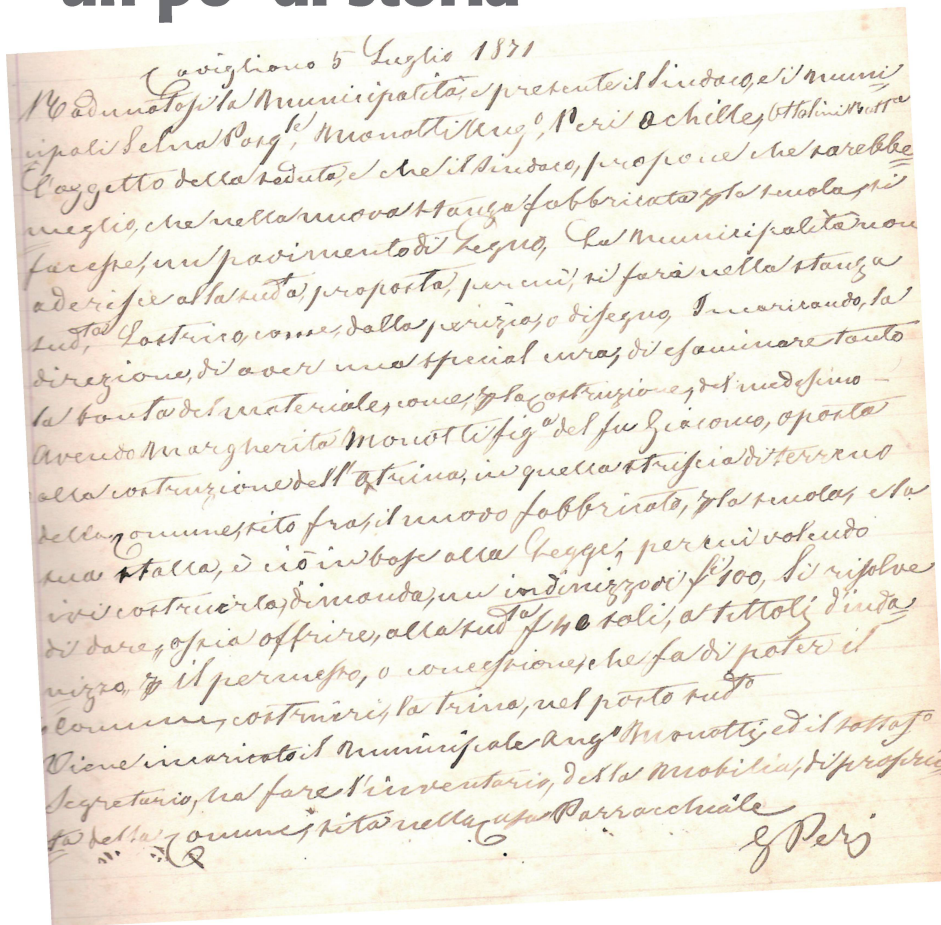 un po' di storia
Cavigliano 5 Luglio 1871
Radunatosi la Municipalità, e presente il Sindaco, e i muni
cipali Selna Pasq.le, Monotti Ang.o, Peri Achille, Ottolini Batt.a
l'oggetto della seduta, e che il Sindaco, propone che sarebbe
meglio, che nella nuova stanza fabbricata p la scuola, si
facesse, un pavimento di Legno, La Municipalità non
aderisce alla sud.ta, proposta, percui, si farà nella stanza
sud.ta Lastrico, come, dalla perizia, o disegno, Incaricando, la
direzione, di aver una special cura, di esaminare tanto
la bontà del materiale, come, p la costruzione, del medesimo –
Avendo Margherita Monotti fig.a del fu Giacomo, oposta
alla costruzione dell'atrina, in quella striscia di terreno
della Comune, sito fra, il nuovo fabbricato, p la scuola, e la
sua stalla, è ciò in base alla Legge, per cui volendo
ivi costruirla, dimanda, un indinizzo di f.i 100, Si risolve
di dare, ossia offrire, alla sud.ta f 40 soli, a tittoli d'inda
nizzo, p il permesso, o concessione, che fa di poter il
Comune, costruire, la trina, nel posto sud.to
Viene incaricato il Municipale Ang.o Monotti, ed il sottos.o
Segretario, ha fare l'inventario, della Mobilia, di proprie
tà della Comune, sita nella Casa Parracchiale
G Peri